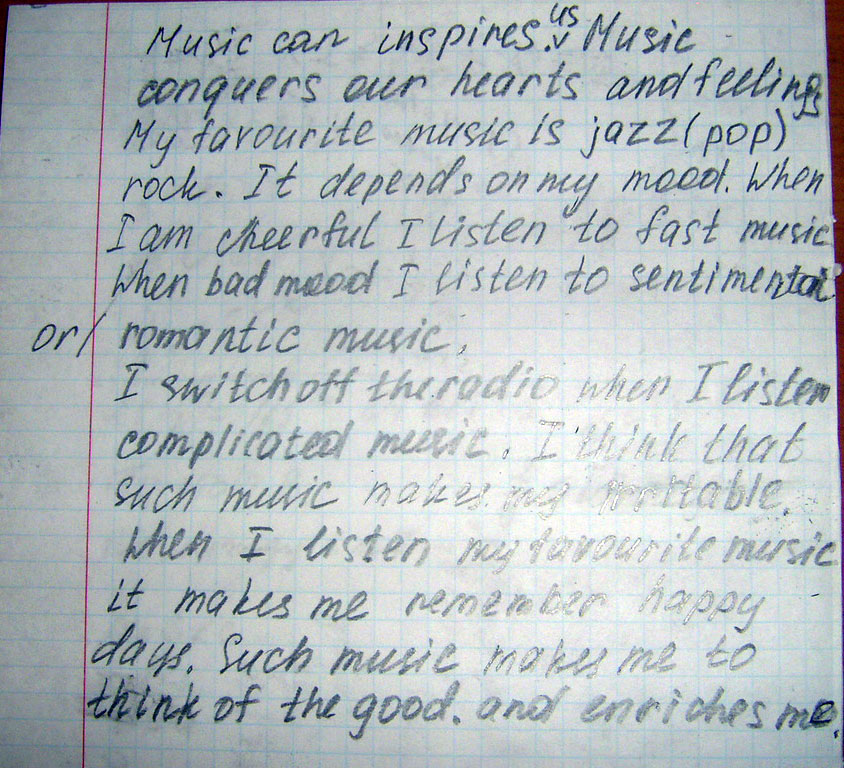 Music can inspires us. Music
conquers our hearts and feelings
My favourite music is jazz (pop)
rock. It depends on my mood. When
I am cheerful I listen to fast music
When bad mood I listen to sentimental
or/ romantic music.
I switch off the radio when I listen
complicated music. I think that
such music makes my irritable.
When I listen my favourite music
it makes me remember happy
days. Such music makes me to
think of the good. and enriches me.